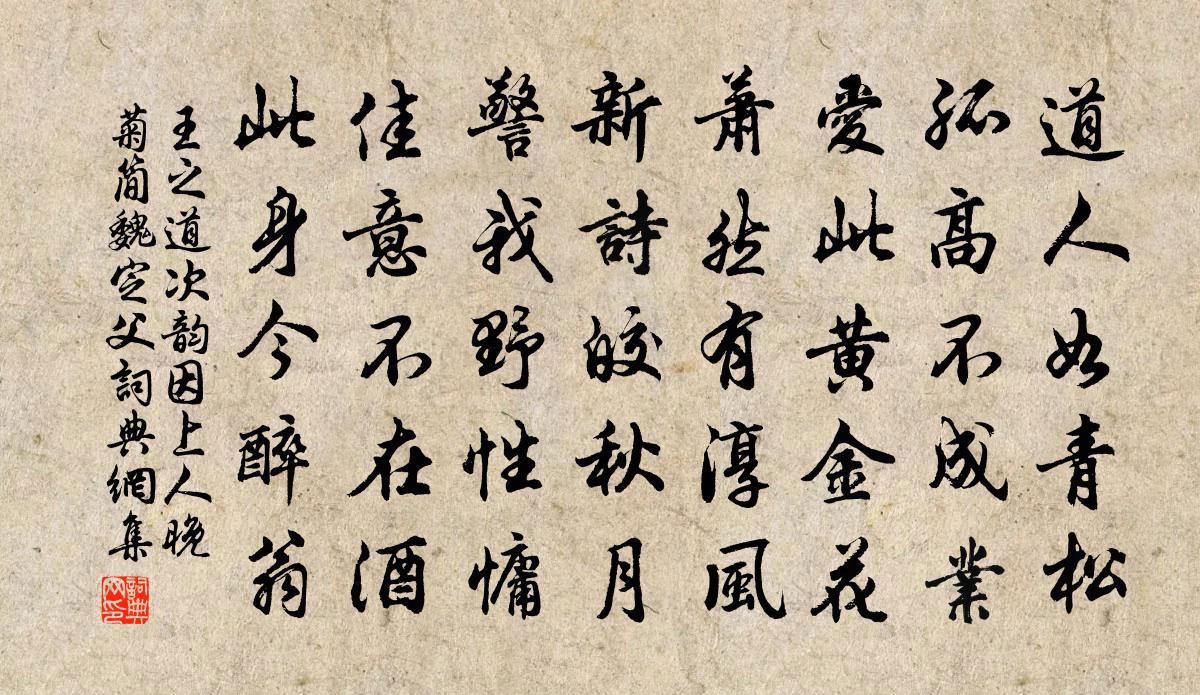 道人如青松
孤高不成業
愛此黄金花
蕭然有淳風
新詩皎秋月
警我野性慵
佳意不在酒
此身今醉翁
王之道次韵因上人晚
菊简魏定父詞典網集
詞典網印